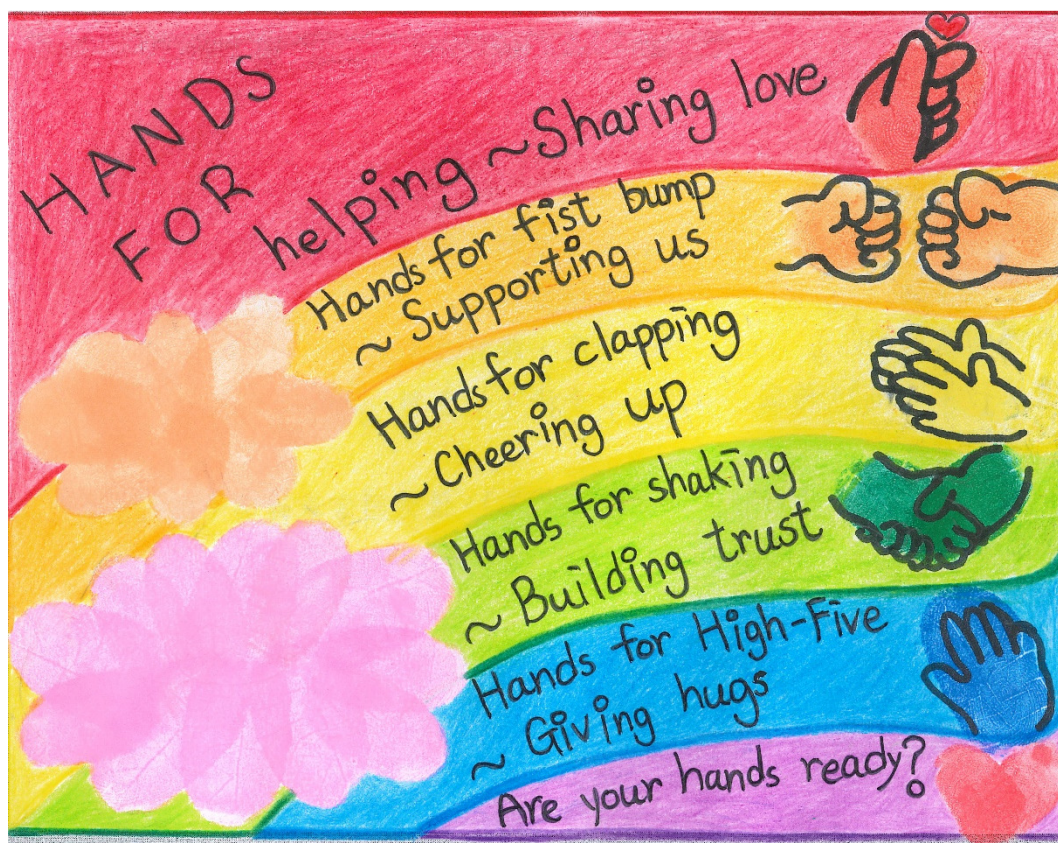 HANDS
FOR
helping ~Sharing love
Hands for fist bump
~ Supporting us
Hands for clapping
~ Cheering up
Hands for shaking
~ Building trust
Hands for High-Five
~ Giving hugs
Are your hands ready?